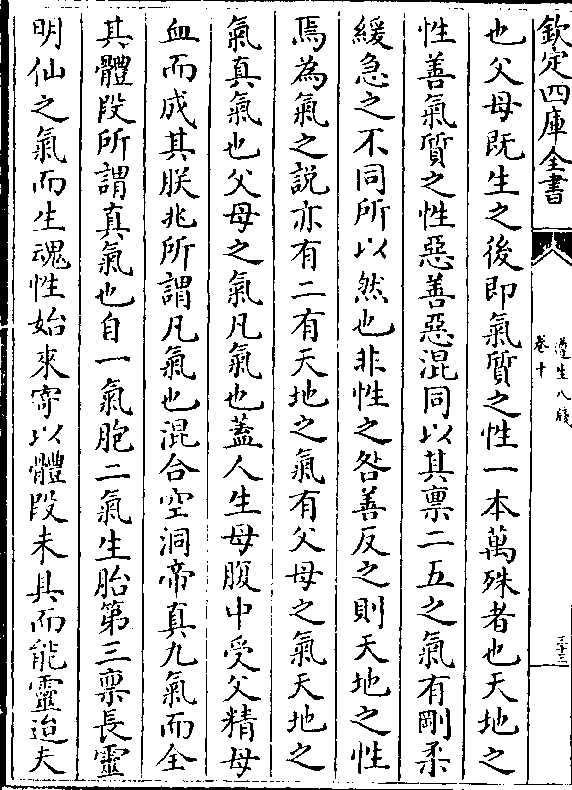 欽定四庫全書
遵生八牋
卷十
三十三
也父母既生之後即氣質之性一本萬殊者也天地之
性善氣質之性惡善惡混同以其禀二五之氣有剛柔
緩急之不同所以然也非性之咎善反之則天地之性
焉為氣之説亦有二有天地之氣有父母之氣天地之
氣真氣也父母之氣凡氣也葢人生母腹中受父精母
血而成其朕兆所謂凡氣也混合空洞帝真九氣而全
其體段所謂真氣也自一氣胞二氣生胎第三禀長靈
明仙之氣而生魂性始來寄以體段未具而能靈迨夫